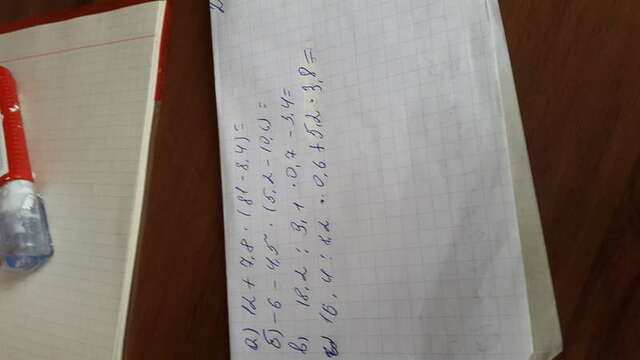 а) 12 + 7,8 · (81 - 8,4) =
б) -6 - 4,5 · (5,2 - 10,6) =
в) 18,2 : 9,1 · 0,7 - 3,4 =
г) 16,4 : 8,2 · 0,6 + 5,2 · 3,8 =